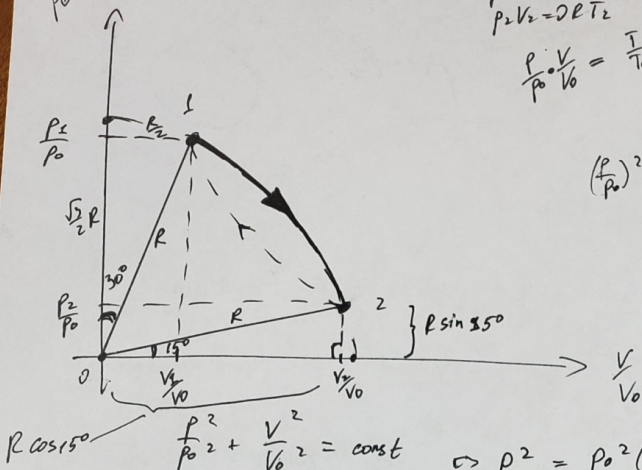 p₂V₂ = υRT₂
P/p₀ · V/V₀ =
1
P1/P₀
R/2
(P/p₀)²
√3/2 R
R
30°
P2/P₀
R
2
} R sin 15°
15°
0
V1/V₀
V2/V₀
V/V₀
R cos 15°
P²/P₀² + V²/V₀² = const
⇔ P² = P₀²(